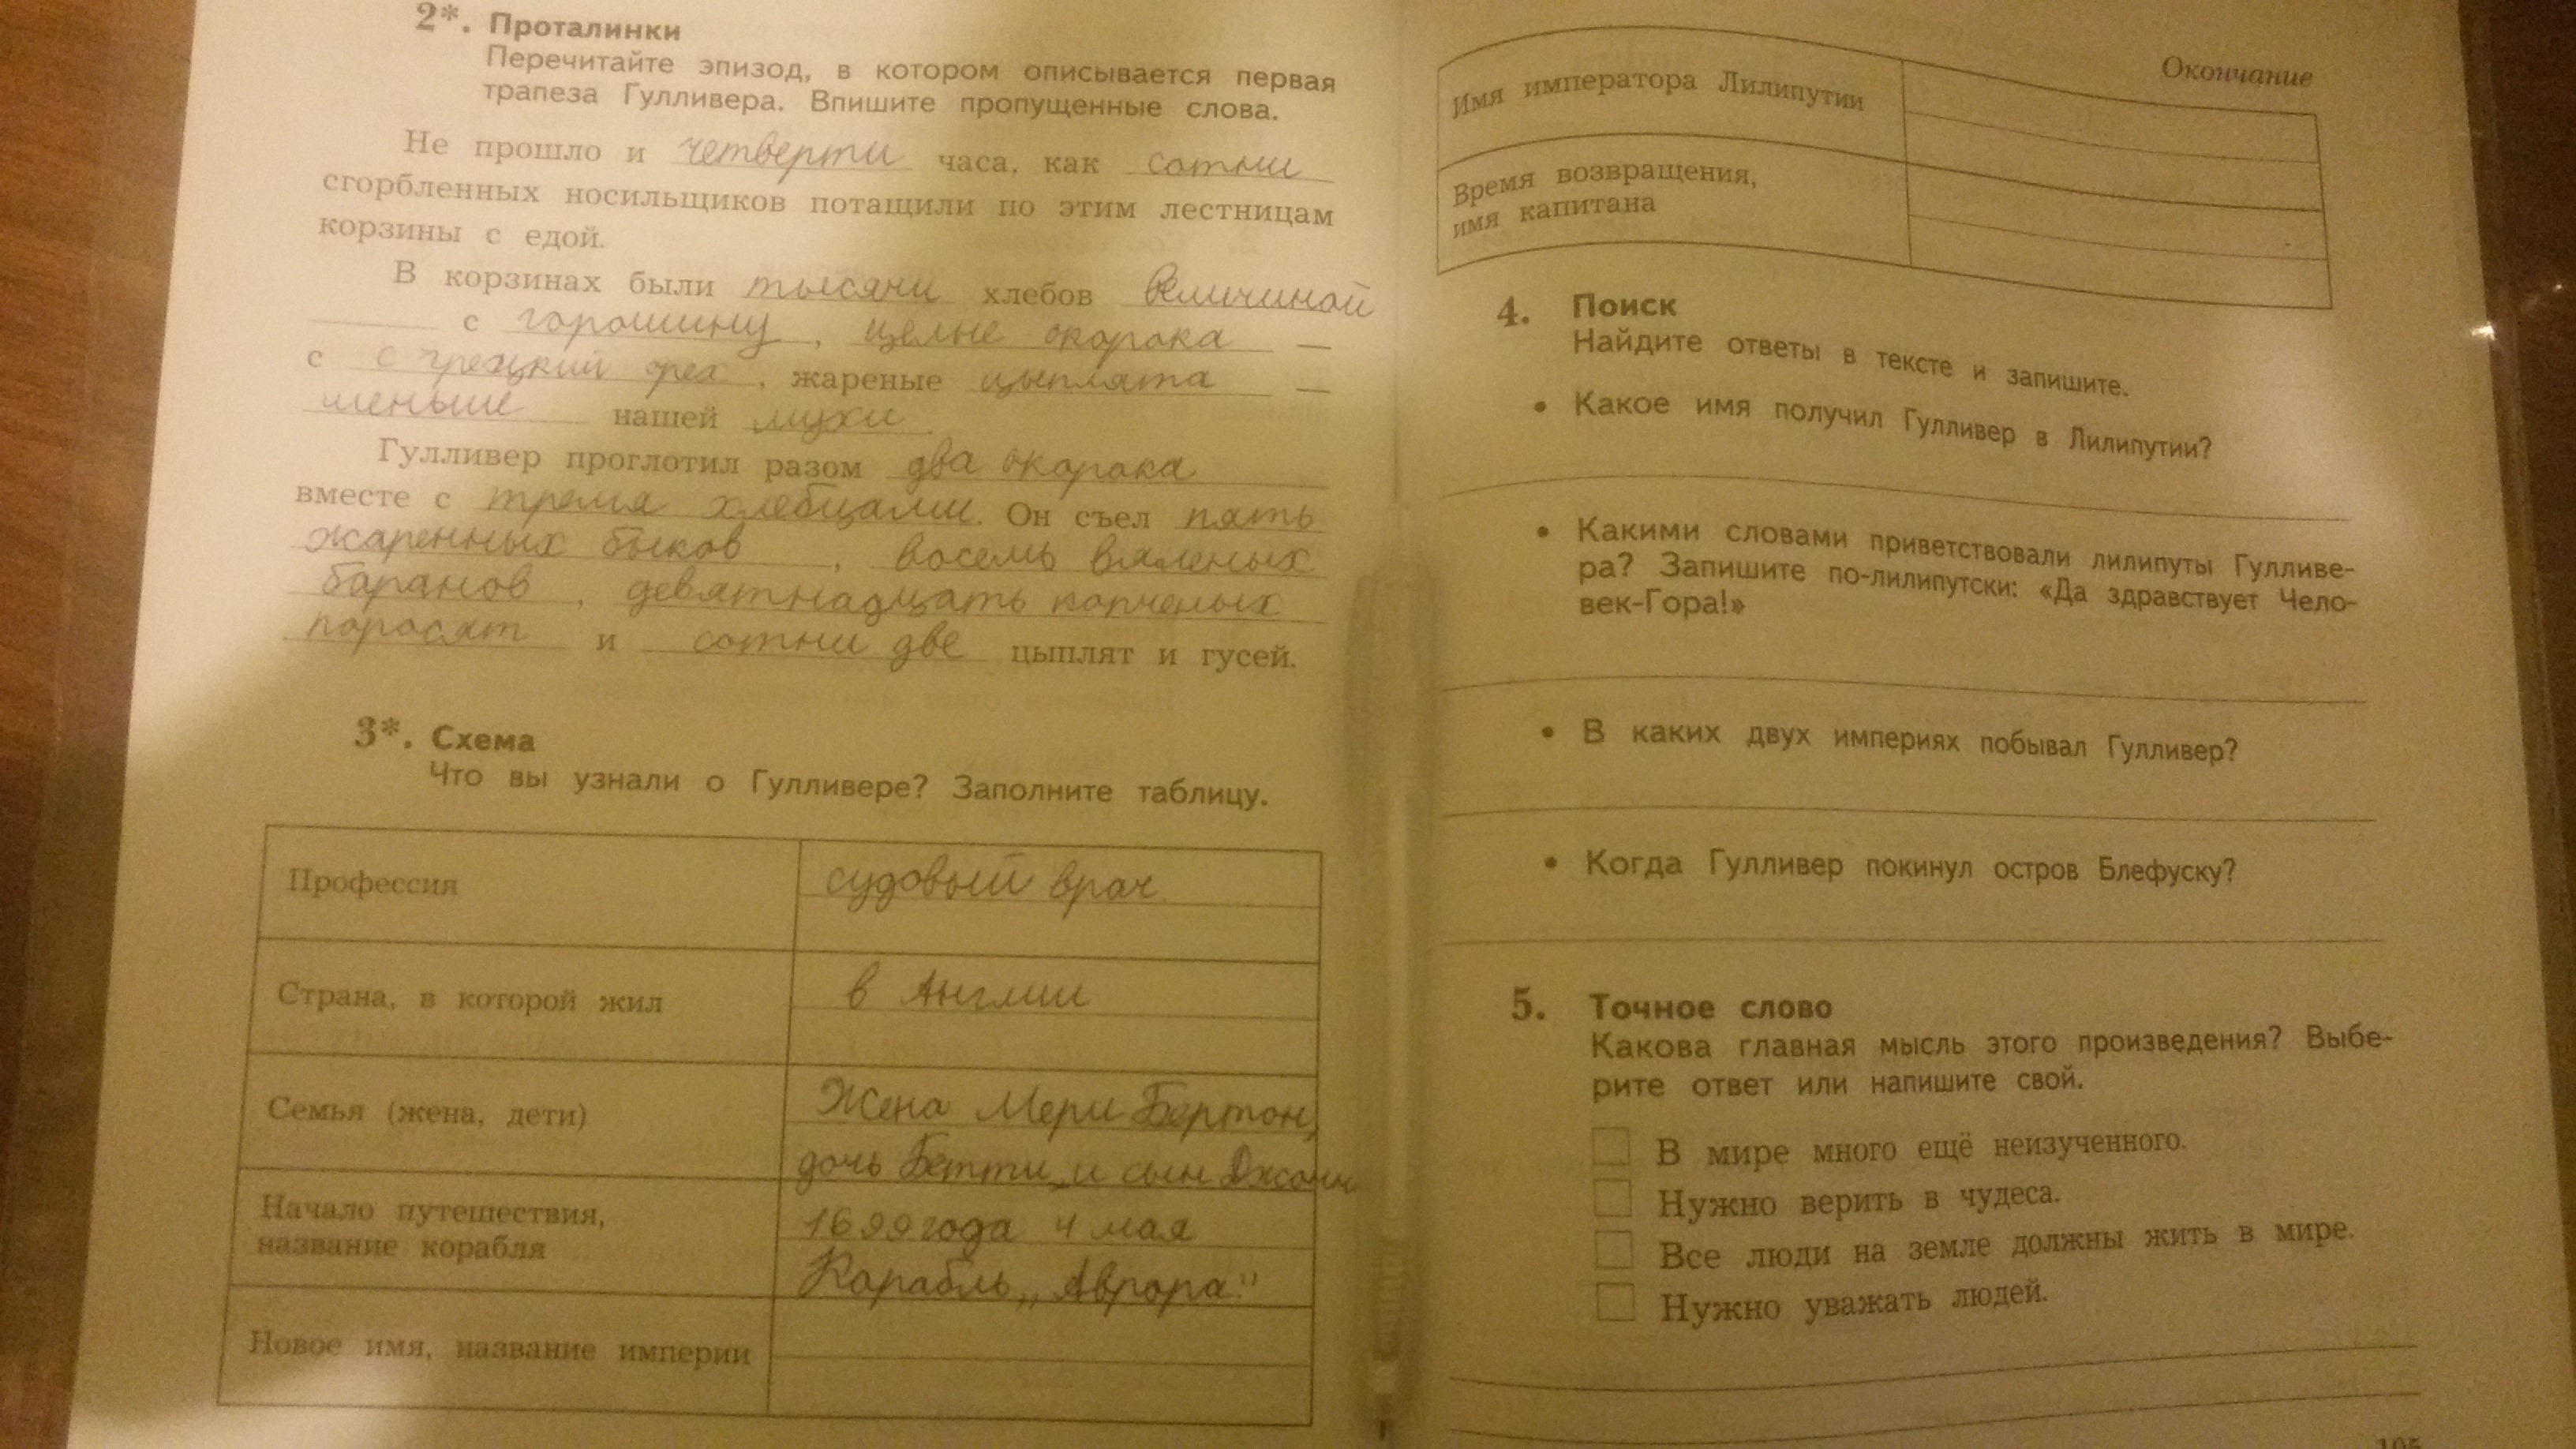 2*. Проталинки
Перечитайте эпизод, в котором описывается первая
трапеза Гулливера. Впишите пропущенные слова.
Не прошло и четверти часа, как сотни
сгорбленных носильщиков потащили по этим лестницам
корзины с едой.
В корзинах были тысячи хлебов величиной
с горошину, целые окорока —
с с грецкий орех, жареные цыплята —
меньше нашей мухи.
Гулливер проглотил разом два окорока
вместе с тремя хлебцами. Он съел пять
жаренных быков, восемь вяленых
баранов, девятнадцать копченых
поросят и сотни две цыплят и гусей.
3*. Схема
Что вы узнали о Гулливере? Заполните таблицу.
Профессия судовый врач.
Страна, в которой жил в Англии
Семья (жена, дети) Жена Мери Бертон,
дочь Бетти, и сын Джонн
Начало путешествия, 1699 года 4 мая
название корабля Корабль „Аврора"
Новое имя, название империи
Окончание
Имя императора Лилипутии
Время возвращения,
имя капитана
4. Поиск
Найдите ответы в тексте и запишите.
• Какое имя получил Гулливер в Лилипутии?
• Какими словами приветствовали лилипуты Гулливе-
ра? Запишите по-лилипутски: «Да здравствует Чело-
век-Гора!»
• В каких двух империях побывал Гулливер?
• Когда Гулливер покинул остров Блефуску?
5. Точное слово
Какова главная мысль этого произведения? Выбе-
рите ответ или напишите свой.
В мире много ещё неизученного.
Нужно верить в чудеса.
Все люди на земле должны жить в мире.
Нужно уважать людей.